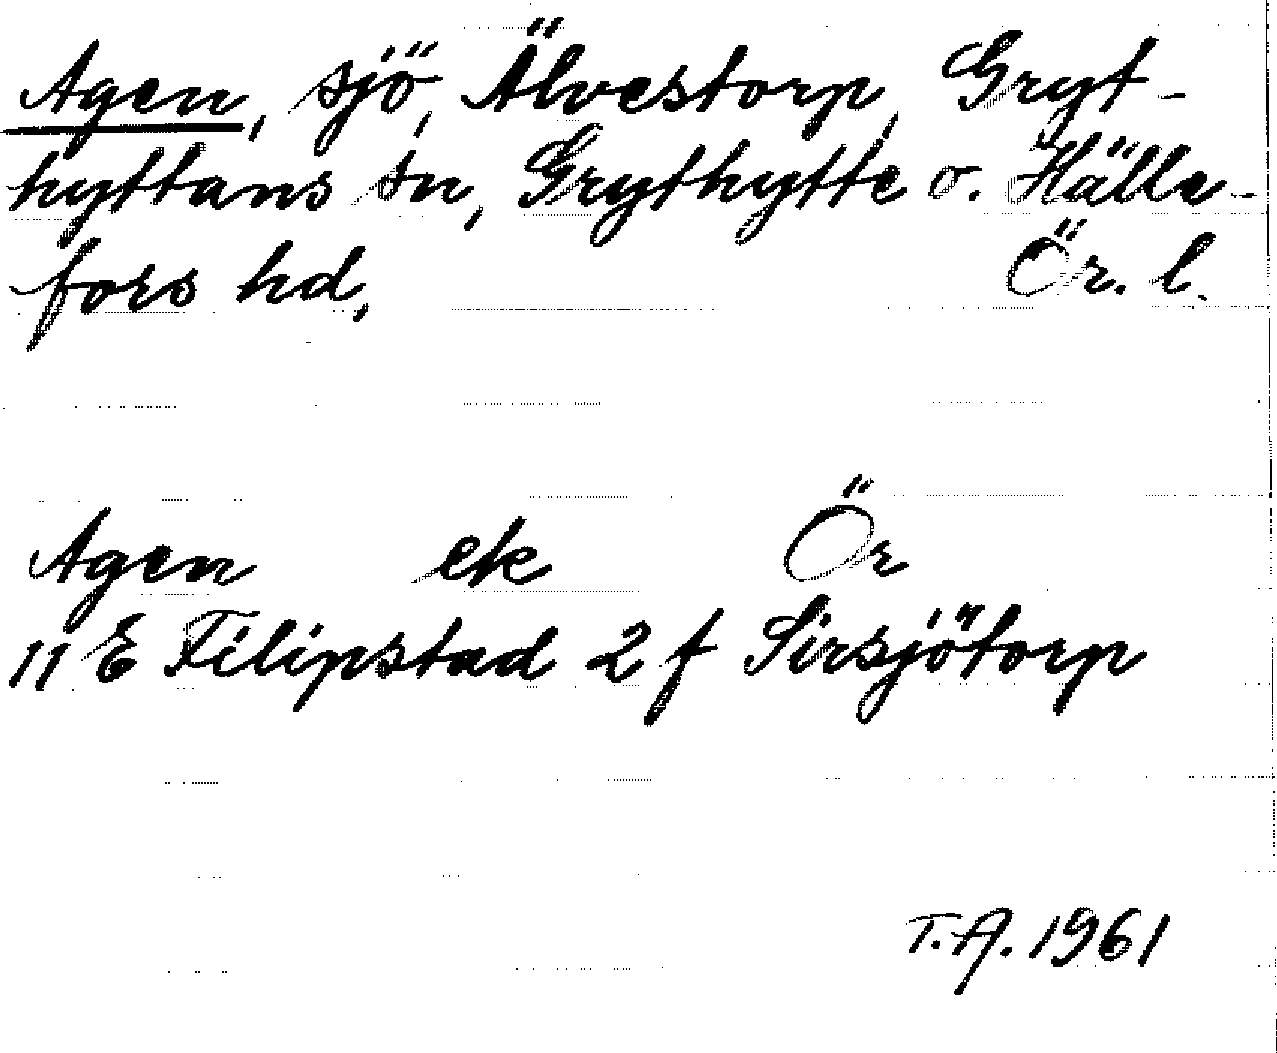 Agen, sjö, Älvestorp, Gryt-
hyttans sn, Grythytte o. Hälle-
fors hd, Ör. l.
Agen ek Ör
11 E Filipstad 2 f Sirsjötorp
T.A. 1961